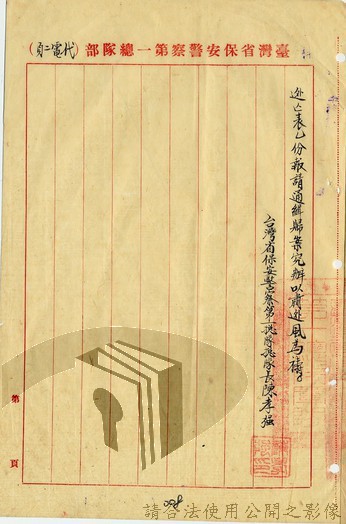 臺灣省保安警察第一總隊部（代電二頁）
逃亡表乙份報請通緝歸案究辦以肅逃風為禱
台灣省保安警察第一總隊總隊長陳孝強
第　頁
請合法使用公開之影像